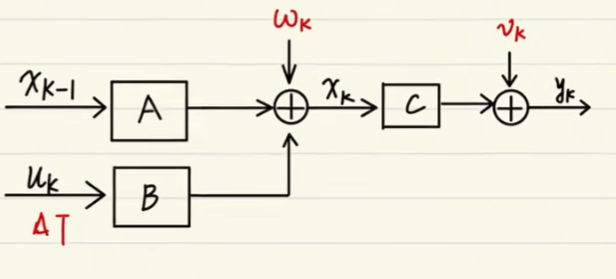 ωₖ
νₖ
xₖ₋₁
A
xₖ
C
yₖ
uₖ
B
ΔT